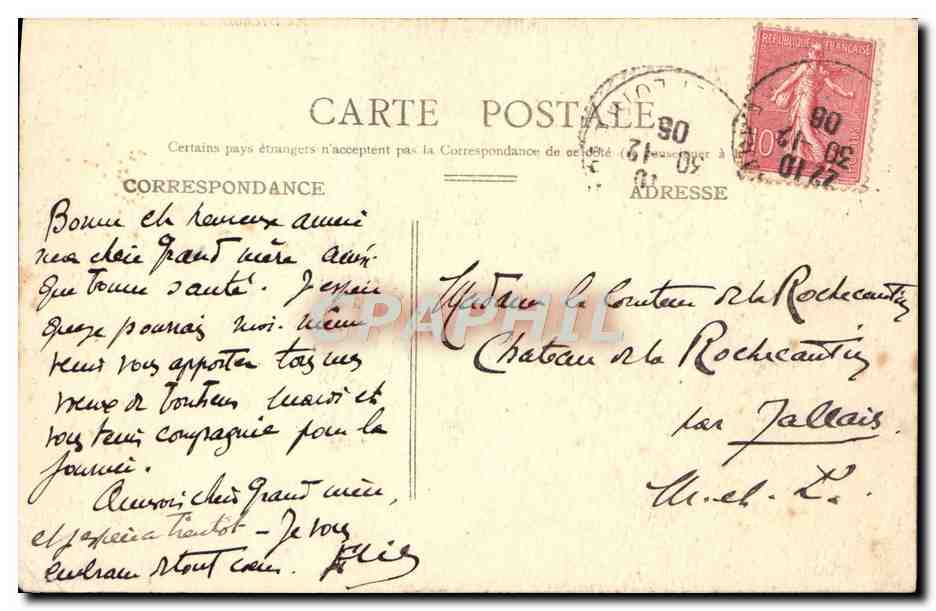 CARTE POSTALE
Certains pays étrangers n'acceptent pas la Correspondance de ce côté (se renseigner à
CORRESPONDANCE
ADRESSE
REPUBLIQUE FRANÇAISE
10
22 10
30
12
06
10
30
12
06
Bonne et heureuse année
ma chère Grand mère ainsi
que bonne santé. J'espère
que je pourrais moi-même
venir vous apporter tous mes
voeux de bonheur mardi et
vous tenir compagnie pour la
journée.
Au revoir chère Grand mère,
et j'espère à bientôt - Je vous
embrasse de tout coeur.
Madame la Comtesse de la Rochecantin
Chateau de la Rochecantin
par Jallais.
M. et L.
CPAPHIL